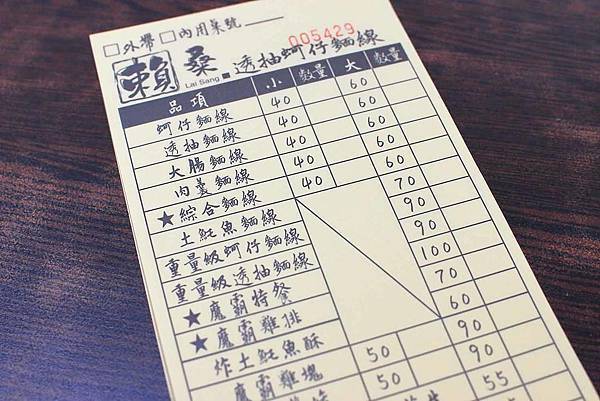 □外帶 □內用桌號
005429
賴桑 Lai Sang ■透抽蚵仔麵線
品項 小 數量 大 數量
蚵仔麵線 40 60
透抽麵線 40 60
大腸麵線 40 60
肉羹麵線 40 60
★綜合麵線 70
土魠魚麵線 90
重量級蚵仔麵線 90
重量級透抽麵線 100
★魔霸特餐 70
★魔霸雞排 60
炸土魠魚酥 50 90
魔霸雞塊 50 90
55